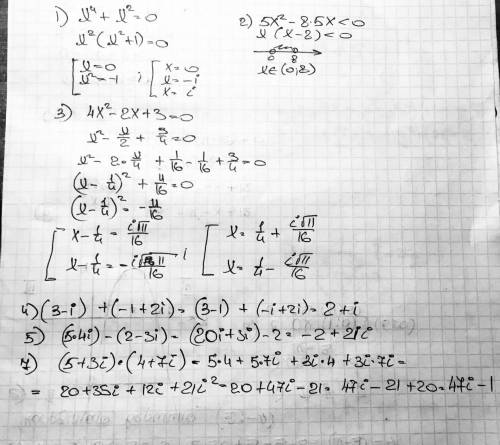 1) x⁴ + x² = 0
x²(x²+1) = 0
[ x = 0
x² = -1 ; [ x = 0
x = -i
x = i
2) 5x² - 2·5x < 0
x(x-2) < 0
0 2
x ∈ (0; 2)
3) 4x² - 2x + 3 = 0
x² - x/2 + 3/4 = 0
x² - 2·x/4 + 1/16 - 1/16 + 3/4 = 0
(x - 1/4)² + 11/16 = 0
(x - 1/4)² = -11/16
[ x - 1/4 = i√11/16
x - 1/4 = -i√11/16 ; [ x = 1/4 + i√11/16
x = 1/4 - i√11/16
4) (3-i) + (-1+2i) = (3-1) + (-i+2i) = 2+i
5) (5·4i) - (2-3i) = (20i+3i) - 2 = -2+21i
7) (5+3i)·(4+7i) = 5·4 + 5·7i + 3i·4 + 3i·7i =
= 20+35i + 12i + 21i² = 20+47i - 21 = 47i - 21 + 20 = 47i - 1